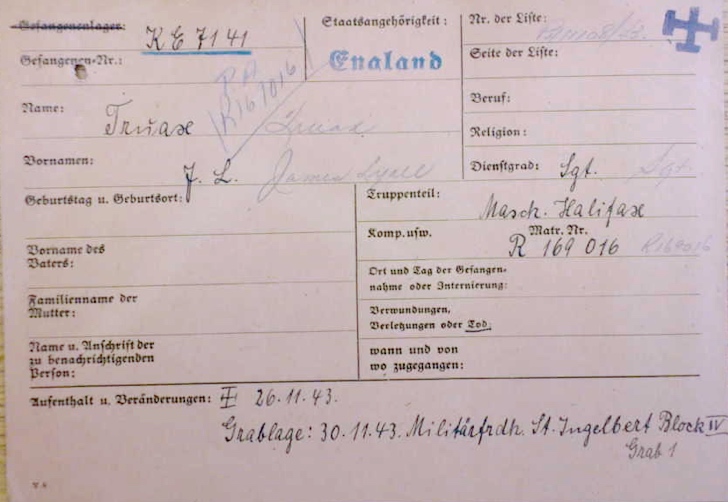 Gefangenenlager:
KE 7141
Staatsangehörigkeit:
England
Nr. der Liste:
Gefangenen-Nr.:
Seite der Liste:
R167016
Beruf:
Name:
Truax Truax
Religion:
Vornamen:
J. L. James Lyall
Dienstgrad: Sgt. Sgt.
Geburtstag u. Geburtsort:
Truppenteil:
Masch. Halifax
Komp. usw.
Matr. Nr.
R 169 016 R169016
Vorname des
Vaters:
Ort und Tag der Gefangen-
nahme oder Internierung:
Familienname der
Mutter:
Verwundungen,
Verletzungen oder Tod,
Name u. Anschrift der
zu benachrichtigenden
Person:
wann und von
wo zugegangen:
Aufenthalt u. Veränderungen: 26.11.43.
Grablage: 30.11.43. Militärfrdh. St. Ingelbert Block IV
Grab 1